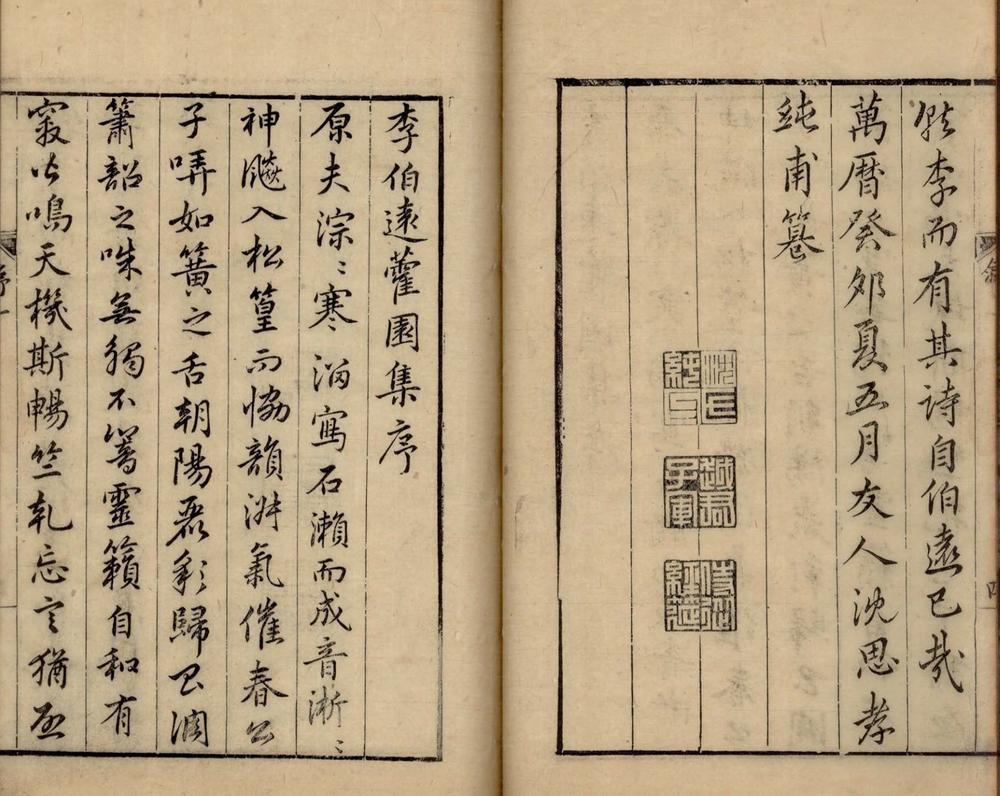 然李而有其詩自伯遠已哉
萬曆癸卯夏五月友人沈思孝
純甫篹
李伯遠藿園集序
原夫淙〻寒湍寫石瀨而成音淅〻
神飇入松篁而恊韻淑氣催春公
子哢如簧之舌朝陽麗彩歸昌
簫韶之咮無觸不篶靈籟自和有
竅必鳴天機斯暢竺乾忘言猶
序一